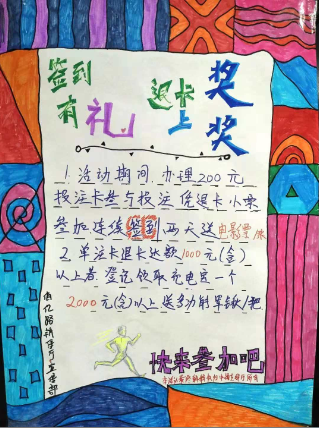 签到
有礼
退卡
上
奖
奖
1.活动期间,办理200元
投注卡参与投注,凭退卡小票
参加连续签到两天送电影票1张
2.单注卡退卡达数1000元(含)
以上者登记领取充电宝一个
2000元(含)以上送多功能军锹1把
快来参加吧